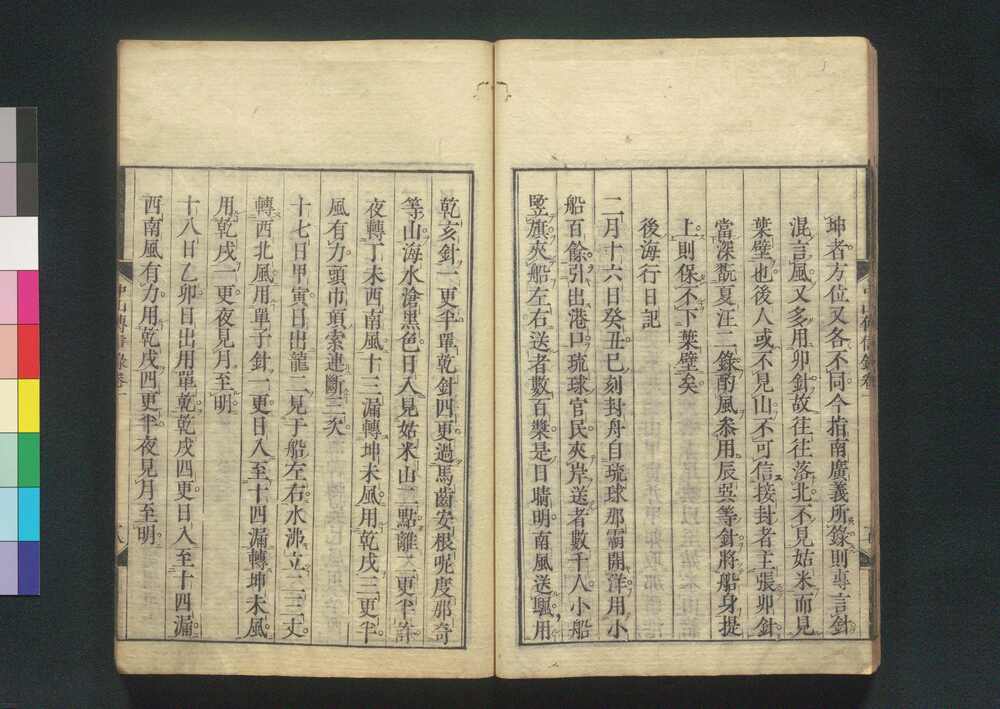 坤者方位又各不同今指南廣義所錄則專言針
混言風又多用卯針故往往落北不見姑米而見
葉壁也後人或不見山不可信接封者主張卯針
當深翫夏汪二錄酌風叅用辰巽等針將船身提
上則保不下葉壁矣
後海行日記
二月十六日癸丑巳刻封舟自琉球那霸開洋用小
船百餘引出港口琉球官民夾岸送者數千人小船
竪旗夾船左右送者數百槳是日晴明南風送颿用
乾亥針一更半單乾針四更過馬齒安根呢度那奇
等山海水滄黑色日入見姑米山二點離二更半許
夜轉丁未西南風十三漏轉坤未風用乾戌三更半
風有力頭巾項索連斷三次
十七日甲寅日出龍二見于船左右水沸立二三丈
轉西北風用單子針一更日入至十四漏轉坤未風
用乾戌一更夜見月至明
十八日乙卯日出用單乾乾戌四更日入至十四漏
西南風有力用乾戌四更半夜見月至明
中山傳信錄卷一